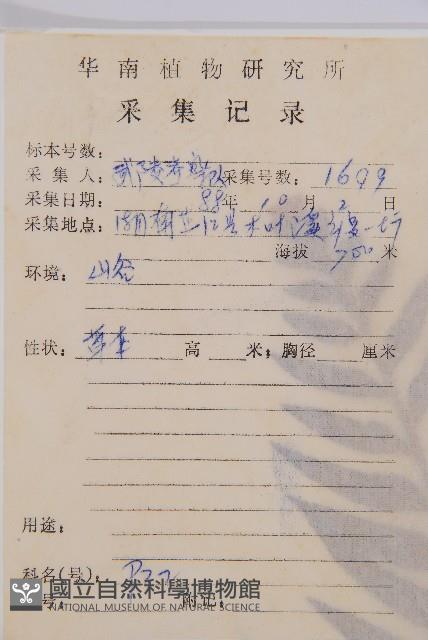 华南植物研究所
采集记录
标本号数:
采集人: 武陵考察队 采集号数: 1699
采集日期: 88年10月2日
采集地点: 湖南芷江县木叶溪
海拔 700米
环境: 山谷
性状: 草本 高 米; 胸径 厘米
用途:
科名(号): P22
号: 附记:
國立自然科學博物館
NATIONAL MUSEUM OF NATURAL SCIENCE